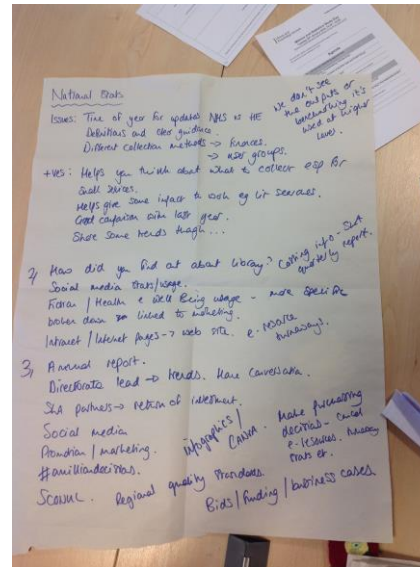 National Stats
Issues: Time of year for updates NHS vs HE
Definitions and clear guidance.
Different collection methods → finances.
→ user groups.
We don't see
the outputs or
benchmarking it's
used at higher
level.
+ves: Helps you think about what to collect esp for
small services.
Helps give some impact to work eg lit searches.
Good comparison with last year.
Show some trends though...
2, How did you find out about library?
Costing info - SLA
quarterly report.
Social media stats/usage.
Fiction / Health & Well Being usage - more specific
broken down linked to marketing.
Intranet / Internet pages → web site.
e-resource
turnaways.
3, Annual report.
Directorate lead → trends. Have conversation.
SLA partners → return of investment.
Social media
Promotion / marketing.
#amilliondecisions.
infographics /
CANVA.
Make purchasing
decisions - cancel
e-resources. turnaway
stats etc.
SCONUL. Regional quality standards.
Bids / funding / business cases.